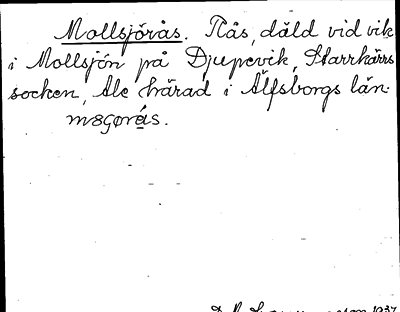 Mollsjörås. Nås, däld vid vik
i Mollsjön på Djupevik, Starrkärrs
socken, Ale härad i Älfsborgs län.
1937